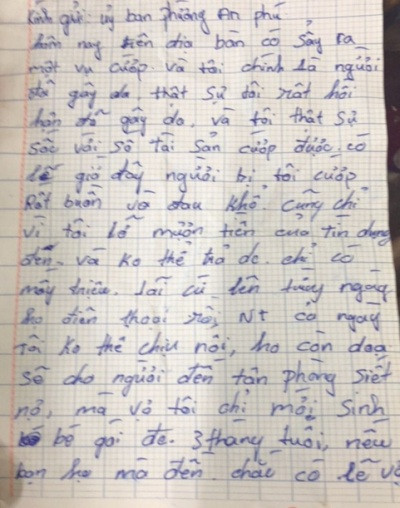 Kính gửi: uỷ ban phường An phú
hôm nay trên địa bàn có sảy ra
một vụ cướp. và tôi chính là người
đã gây da, thật sự tôi rất hối
hận đã gây da, và tôi thật sự
sốc với số tài sản cướp được. có
lẽ giờ đây người bị tôi cướp
Rất buồn và đau khổ. cũng chỉ
vì tôi lỡ mượn tiền của tín dụng
đen. và ko thể trả dc. chỉ có
mấy triệu. lãi cứ lên từng ngày
họ điện thoại rồi, NT cả ngày
tôi ko thể chịu nổi, họ còn doạ
sẽ cho người đến tận phòng siết
nợ, mà vợ tôi chỉ mới sinh
bé gái đc. 3 thang tuổi, nếu
bọn họ mà đến. chắc có lẽ vợ